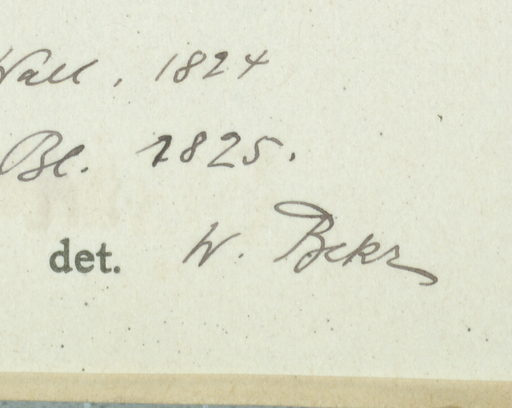 Wall, 1824
Bl. 1825.
det. W. Bekr